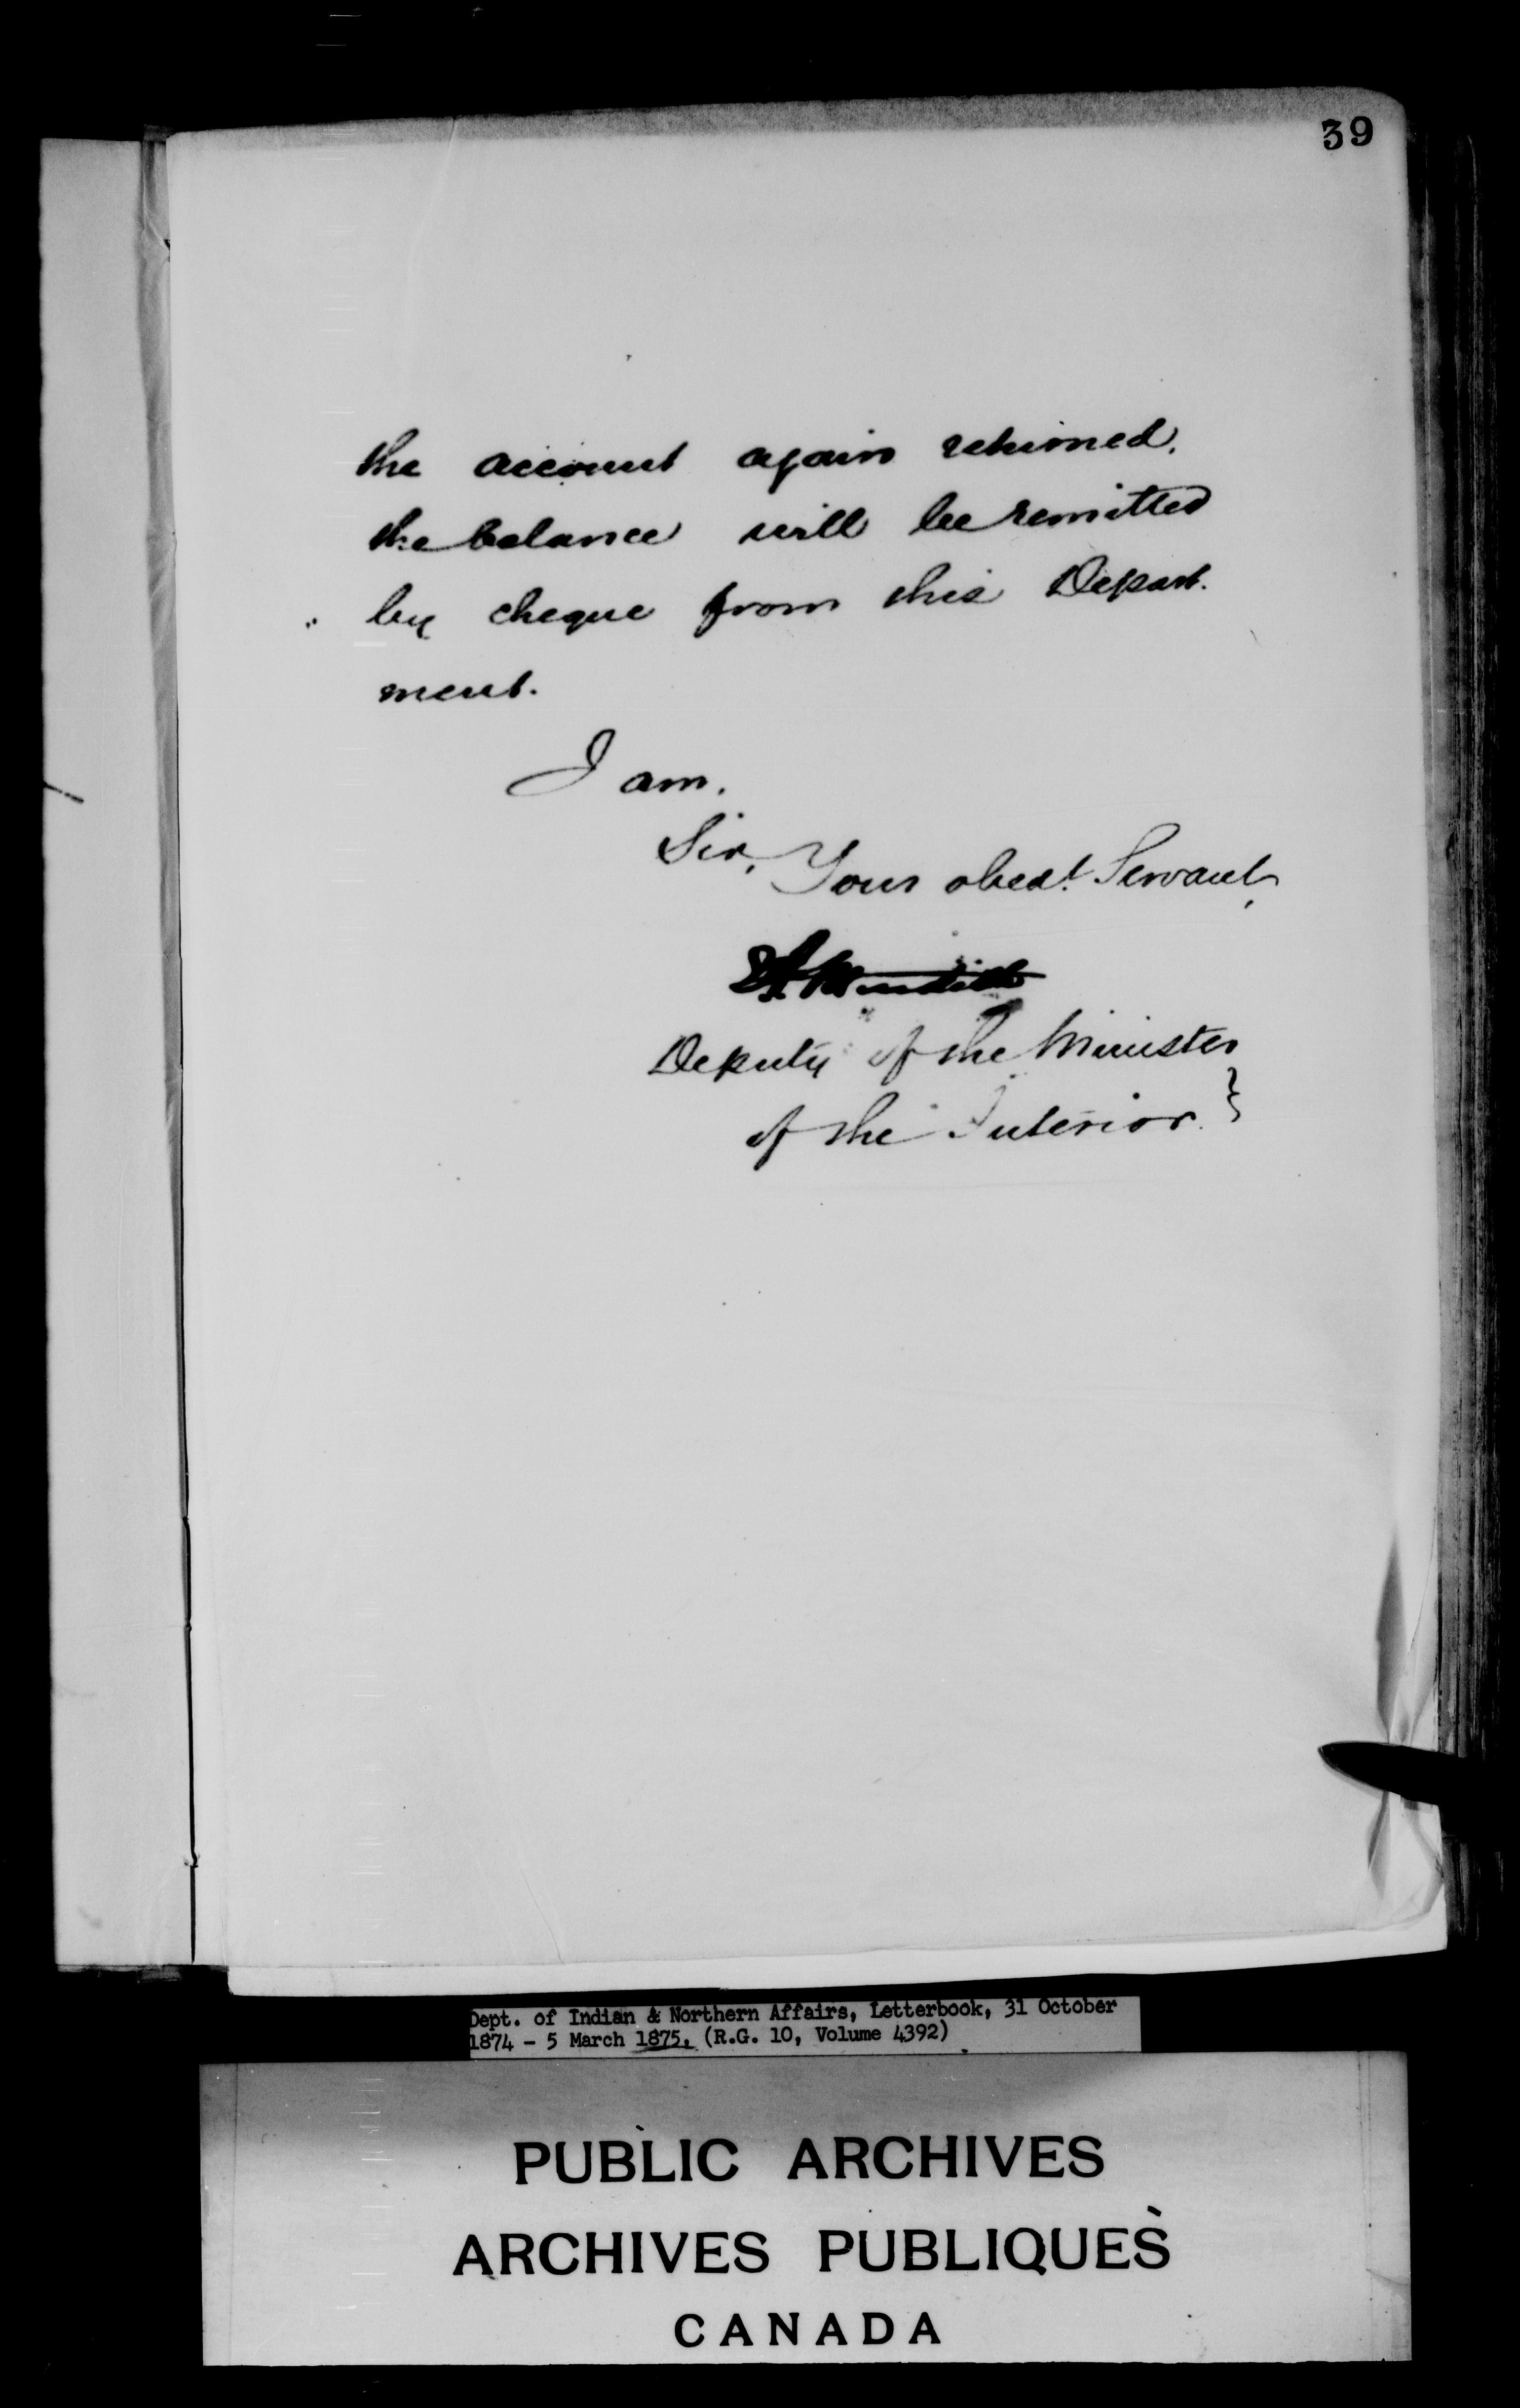 39
the account again returned,
the balance will be remitted
by cheque from this Depart-
ment.
I am,
Sir,
Your obedt. Servant,
E A Meredith
Deputy of the Minister
of the Interior }
Dept. of Indian & Northern Affairs, Letterbook, 31 October
1874 - 5 March 1875, (R.G. 10, Volume 4392)
PUBLIC ARCHIVES
ARCHIVES PUBLIQUES
CANADA